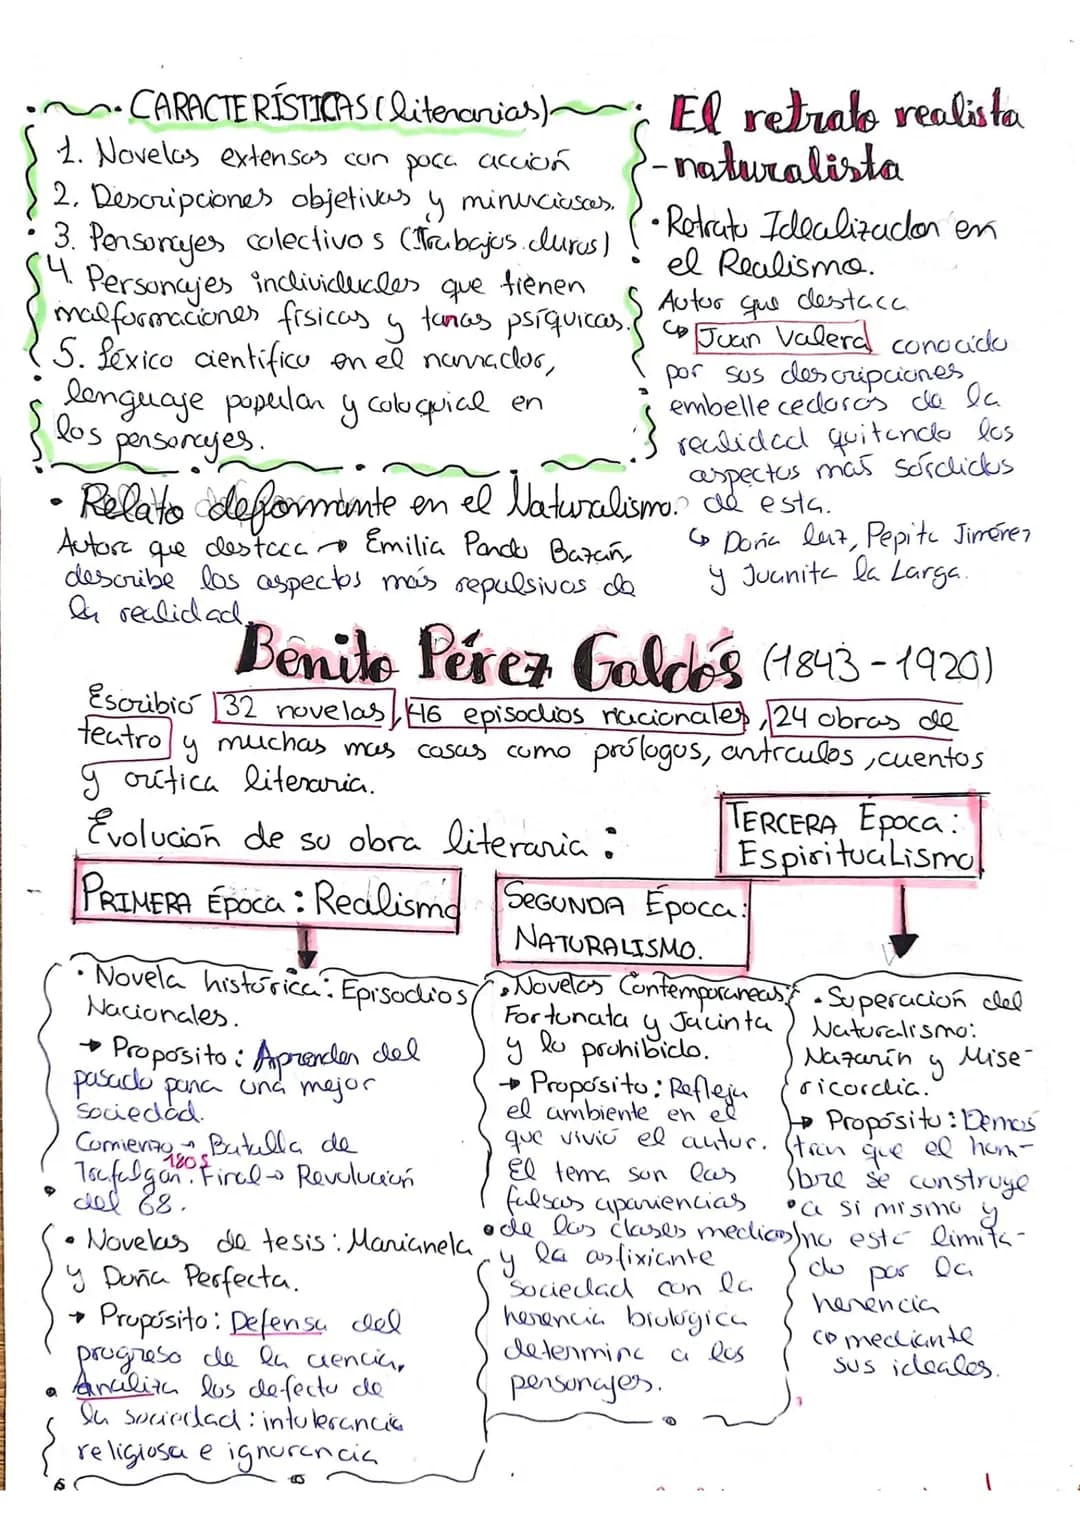 CARACTERÍSTICAS (literarias)
1. Novelas extensas con poca acción
2. Descripciones objetivas y minuciosas.
3. Personajes colectivos (Trabajos duros)
4. Personajes individuales que tienen
malformaciones físicas y taras psíquicas.
5. Léxico científico en el narrador,
lenguaje popular y coloquial en
los personajes.
El retrato realista
-naturalista
• Retrato Idealizador en
el Realismo.
Autor que destaca
↳ Juan Valera conocido
por sus descripciones
embellecedoras de la
realidad quitando los
aspectos más sórdidos
de esta.
↳ Doña luz, Pepita Jiménez
y Juanita la Larga.
• Relato deformante en el Naturalismo.
Autora que destaca → Emilia Pardo Bazán,
describe los aspectos más repulsivos de
la realidad.
Benito Pérez Galdós (1843-1920)
Escribió 32 novelas, 46 episodios nacionales, 24 obras de
teatro y muchas mas cosas como prólogos, artículos, cuentos
y crítica literaria.
Evolución de su obra literaria:
PRIMERA Época: Realismo
• Novela histórica: Episodios
Nacionales.
→ Propósito: Aprender del
pasado para una mejor
sociedad.
Comienzo → Batalla de
1805
Trafalgar. Final → Revolución
del 68.
• Novelas de tesis: Marianela
y Doña Perfecta.
→ Propósito: Defensa del
progreso de la ciencia,
Analiza los defecto de
la sociedad: intolerancia
religiosa e ignorancia
SEGUNDA Época:
NATURALISMO.
• Novelas Contemporaneas:
Fortunata y Jacinta
y lo prohibido.
→ Propósito: Refleja
el ambiente en el
que vivió el autor.
El tema son las
falsas apariencias
de las clases medias
y la asfixiante
sociedad con la
herencia biológica
determina a los
personajes.
TERCERA Época:
Espiritualismo
• Superación del
Naturalismo:
Nazarín y Mise-
ricordia.
↳ Propósito: Demos
tran que el hom-
bre se construye
a si mismo y
no está limita-
do por la
herencia
↳ mediante
sus ideales.